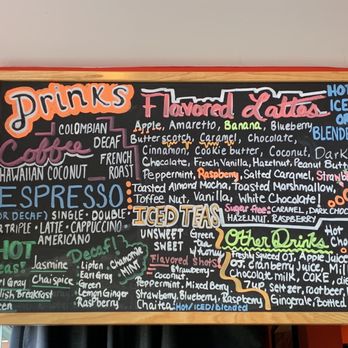 Drinks
COLOMBIAN
Coffee
DECAF
FRENCH
ROAST
HAWAIIAN COCONUT
ESPRESSO
OR DECAF) SINGLE · DOUBLE
TRIPLE · LATTE · CAPPUCCINO
AMERICANO
HOT
Teas!
Jasmine
Earl Gray Chai spice
English Breakfast
Green
Decaf!?
Lipton
Earl Gray
Green
Lemon Ginger
Raspberry
Chamomile
MINT
Flavored Lattes
HOT
ICED
OR
BLENDED
Apple, Amaretto, Banana, Blueberry
Butterscotch, Caramel, Chocolate,
Cinnamon, Cookie Butter, Coconut, Dark
Chocolate, French Vanilla, Hazelnut, Peanut Butter
Peppermint, Raspberry, Salted Caramel,
Toasted Almond Mocha, Toasted Marshmallow,
Toffee Nut, Vanilla, White Chocolate!
Sugar free: CARAMEL, DARK CHOC
HAZELNUT, RASPBERRY
ICED TEAS
UNSWEET
SWEET
Green
Flavored Shots!
Strawberry,
Coconut,
Peppermint, Mixed Berry
Strawberry, Blueberry, Raspberry
Chai tea Hot/iced/blended
Other Drinks
Freshly Squeezed OJ, Apple Juice
OJ, Cranberry Juice, Milk
Chocolate milk, COKE,
7up, Seltzer, rootbeer,
Gingerale, Bottled